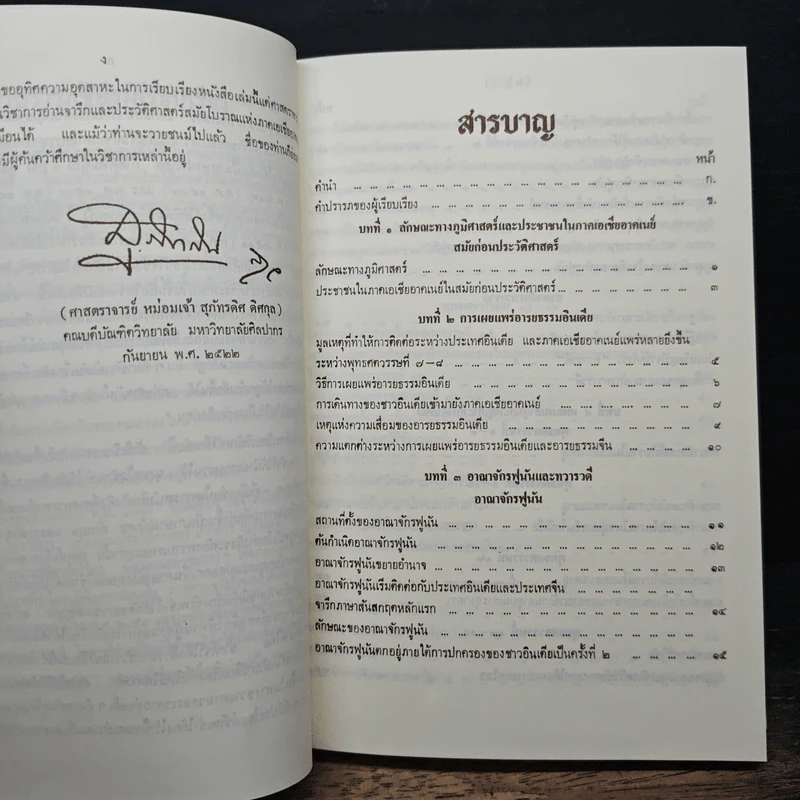 ง
ขออุทิศความอุตสาหะในการเรียบเรียงหนังสือเล่มนี้แด่ศาสตราจารย์
วิชาการอ่านจารึกและประวัติศาสตร์สมัยโบราณแห่งภาคเอเชียอาคเนย์
เหมือนได้ และแม้ว่าท่านจะวายชนม์ไปแล้ว ชื่อของท่านก็ย่อม
มีผู้ค้นคว้าศึกษาในวิชาการเหล่านี้อยู่
(ศาสตราจารย์ หม่อมเจ้า สุภัทรดิศ ดิศกุล)
คณบดีบัณฑิตวิทยาลัย มหาวิทยาลัยศิลปากร
กันยายน พ.ศ. ๒๕๒๒
สารบาญ
หน้า
คำนำ ... ก.
คำปรารภของผู้เรียบเรียง ... ข.
บทที่ ๑ ลักษณะทางภูมิศาสตร์และประชาชนในภาคเอเชียอาคเนย์
สมัยก่อนประวัติศาสตร์
ลักษณะทางภูมิศาสตร์ ... ๑
ประชาชนในภาคเอเชียอาคเนย์ในสมัยก่อนประวัติศาสตร์ ... ๓
บทที่ ๒ การเผยแพร่อารยธรรมอินเดีย
มูลเหตุที่ทำให้การติดต่อระหว่างประเทศอินเดีย และภาคเอเชียอาคเนย์แพร่หลายยิ่งขึ้น
ระหว่างพุทธศตวรรษที่ ๗-๘ ... ๕
วิธีการเผยแพร่อารยธรรมอินเดีย ... ๖
การเดินทางของชาวอินเดียเข้ามายังภาคเอเชียอาคเนย์ ... ๗
เหตุแห่งความเสื่อมของอารยธรรมอินเดีย ... ๙
ความแตกต่างระหว่างการเผยแพร่อารยธรรมอินเดียและอารยธรรมจีน ... ๑๐
บทที่ ๓ อาณาจักรฟูนันและทวารวดี
อาณาจักรฟูนัน
สถานที่ตั้งของอาณาจักรฟูนัน ... ๑๑
ต้นกำเนิดอาณาจักรฟูนัน ... ๑๒
อาณาจักรฟูนันขยายอำนาจ ... ๑๓
อาณาจักรฟูนันเริ่มติดต่อกับประเทศอินเดียและประเทศจีน ...
จารึกภาษาสันสกฤตหลักแรก ... ๑๔
ลักษณะของอาณาจักรฟูนัน ...
อาณาจักรฟูนันตกอยู่ภายใต้การปกครองของชาวอินเดียเป็นครั้งที่ ๒ ... ๑๕